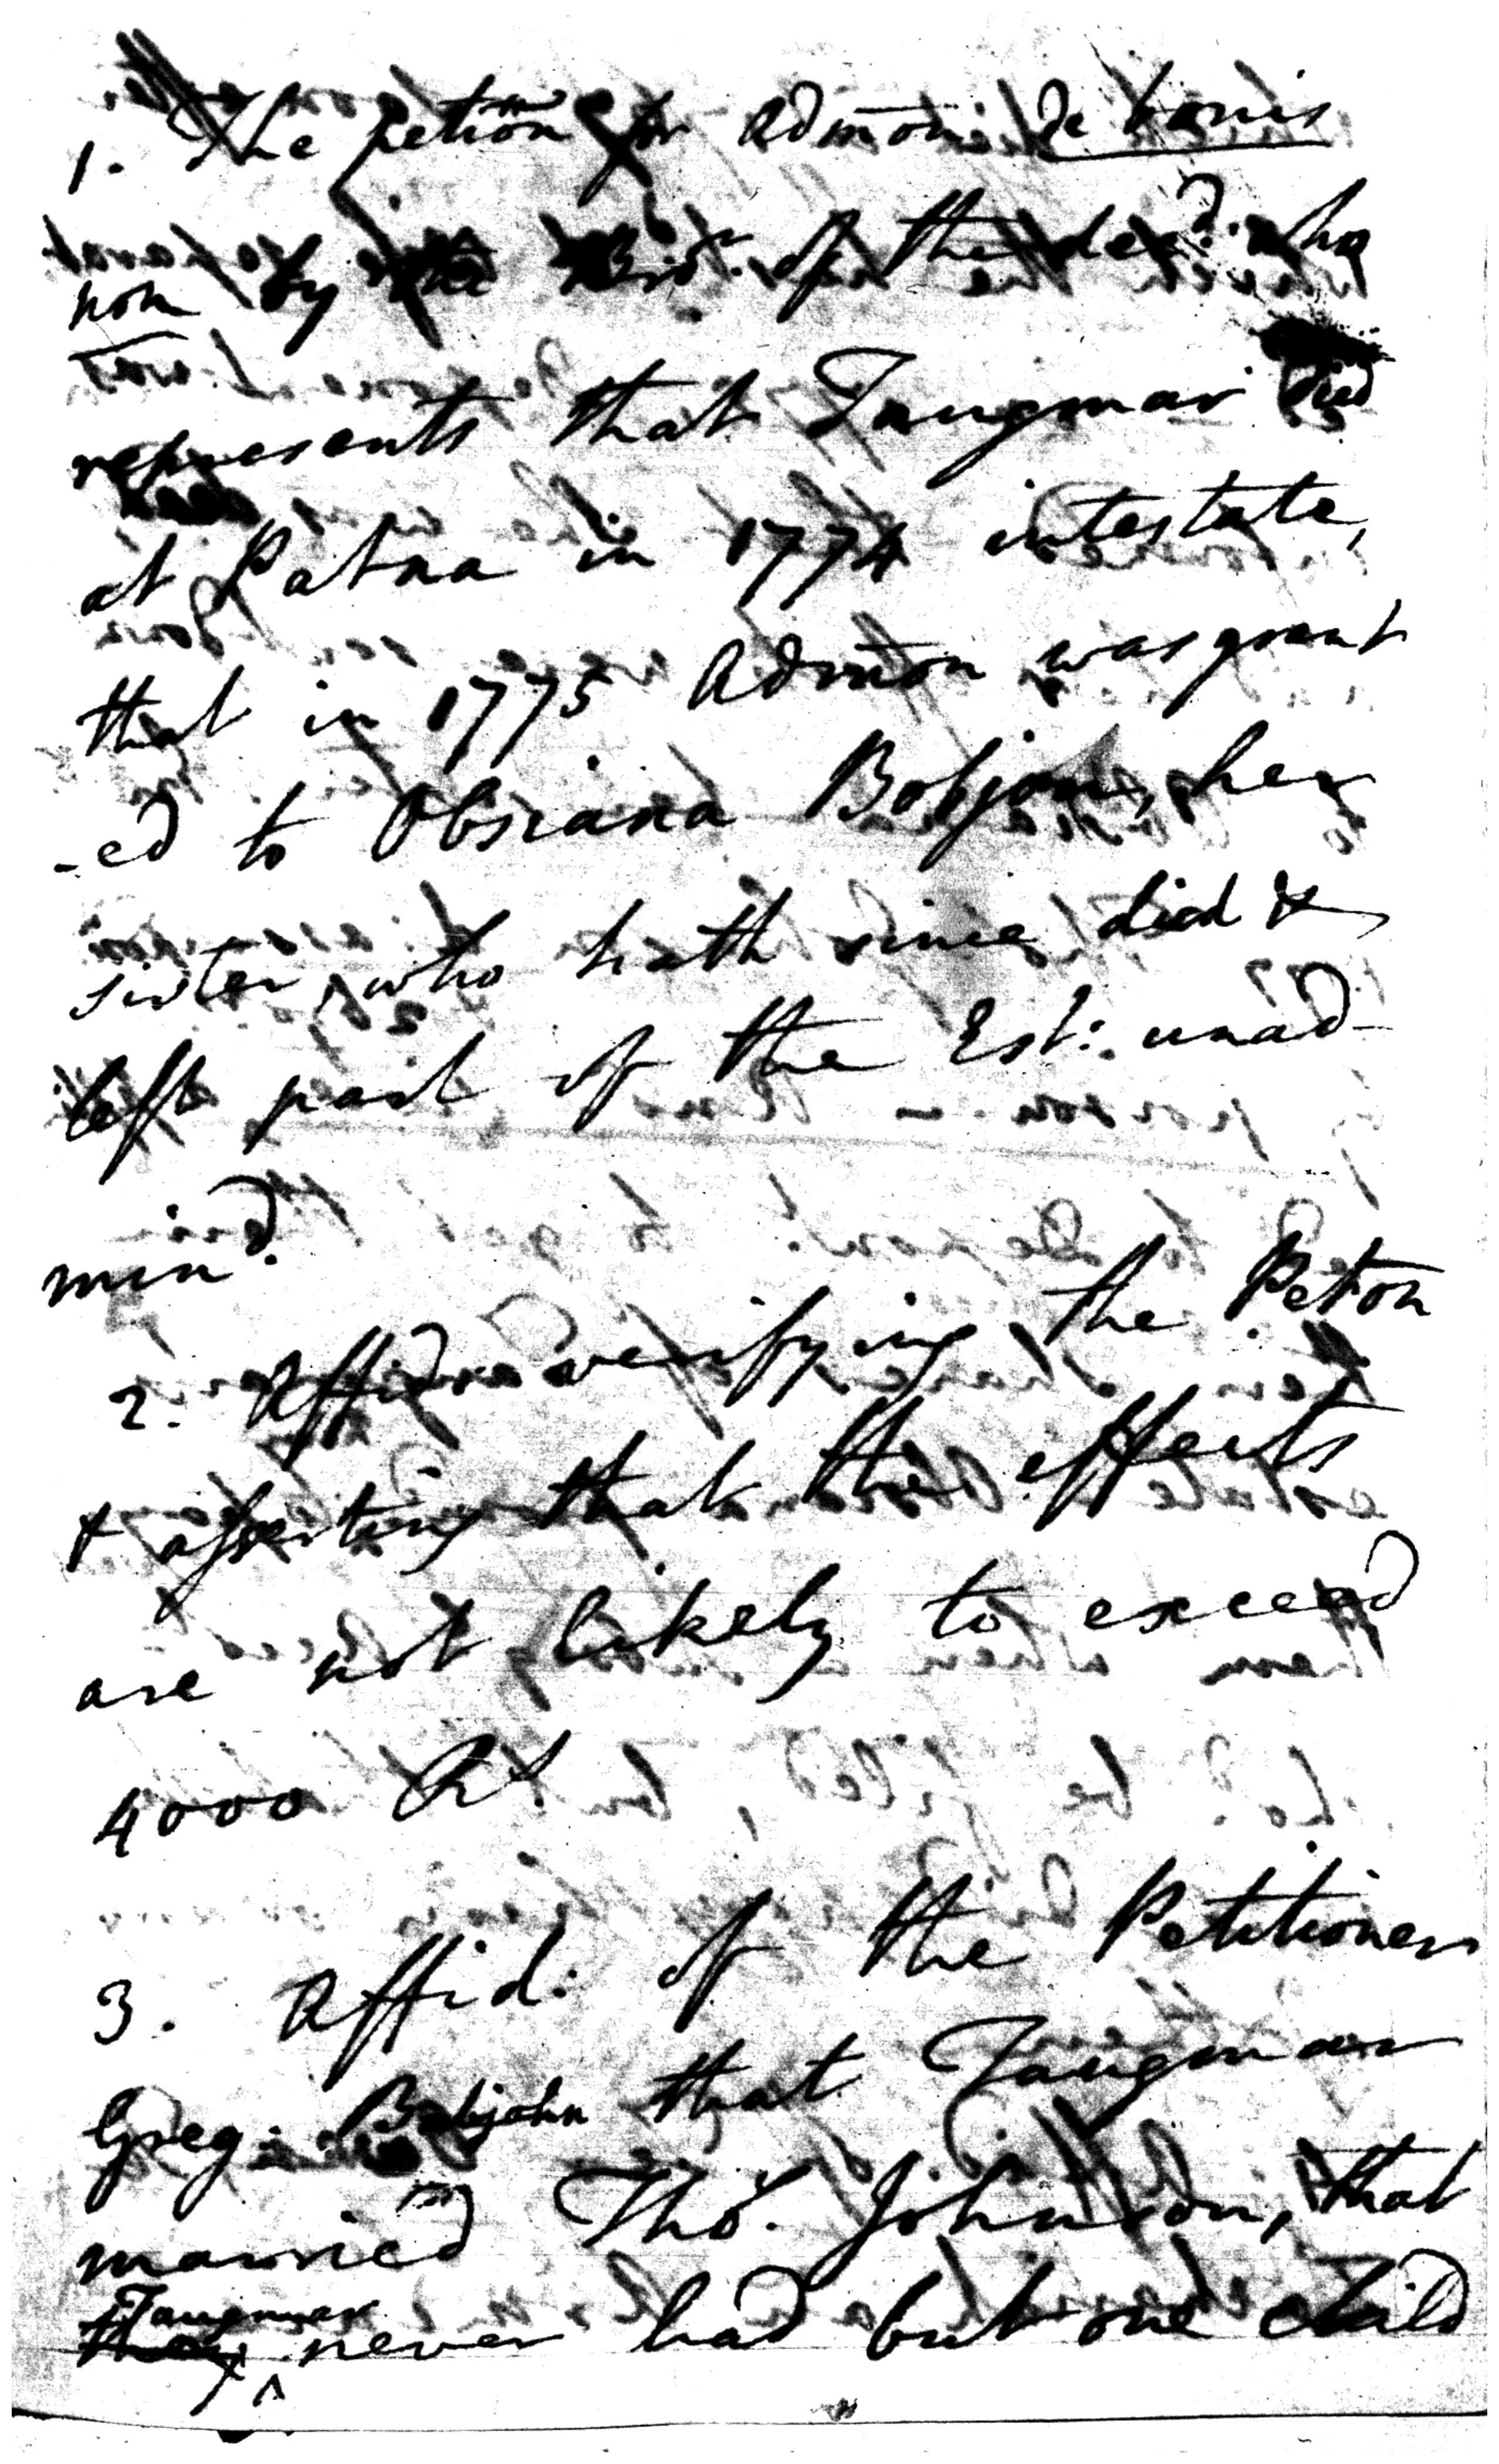 1. The petiōn for Admōn de bonis
non by the Bror. of the decd. who
represents that Taugmar died
at Patna in 1774 intestate,
that in 1775 Admōn was grant
-ed to Obsiana Bobjohn, her
sister, who hath since died &
left part of the Est: unad-
mind.
2. Affid verifying the Peton
& asserting that the effects
are not likely to exceed
4000 Rs
3. Affid: of the Petitioner
Greg. Bobjohn that Taugmar
married Thos. Johnson, that
Taugmar
they ^ never had but one child